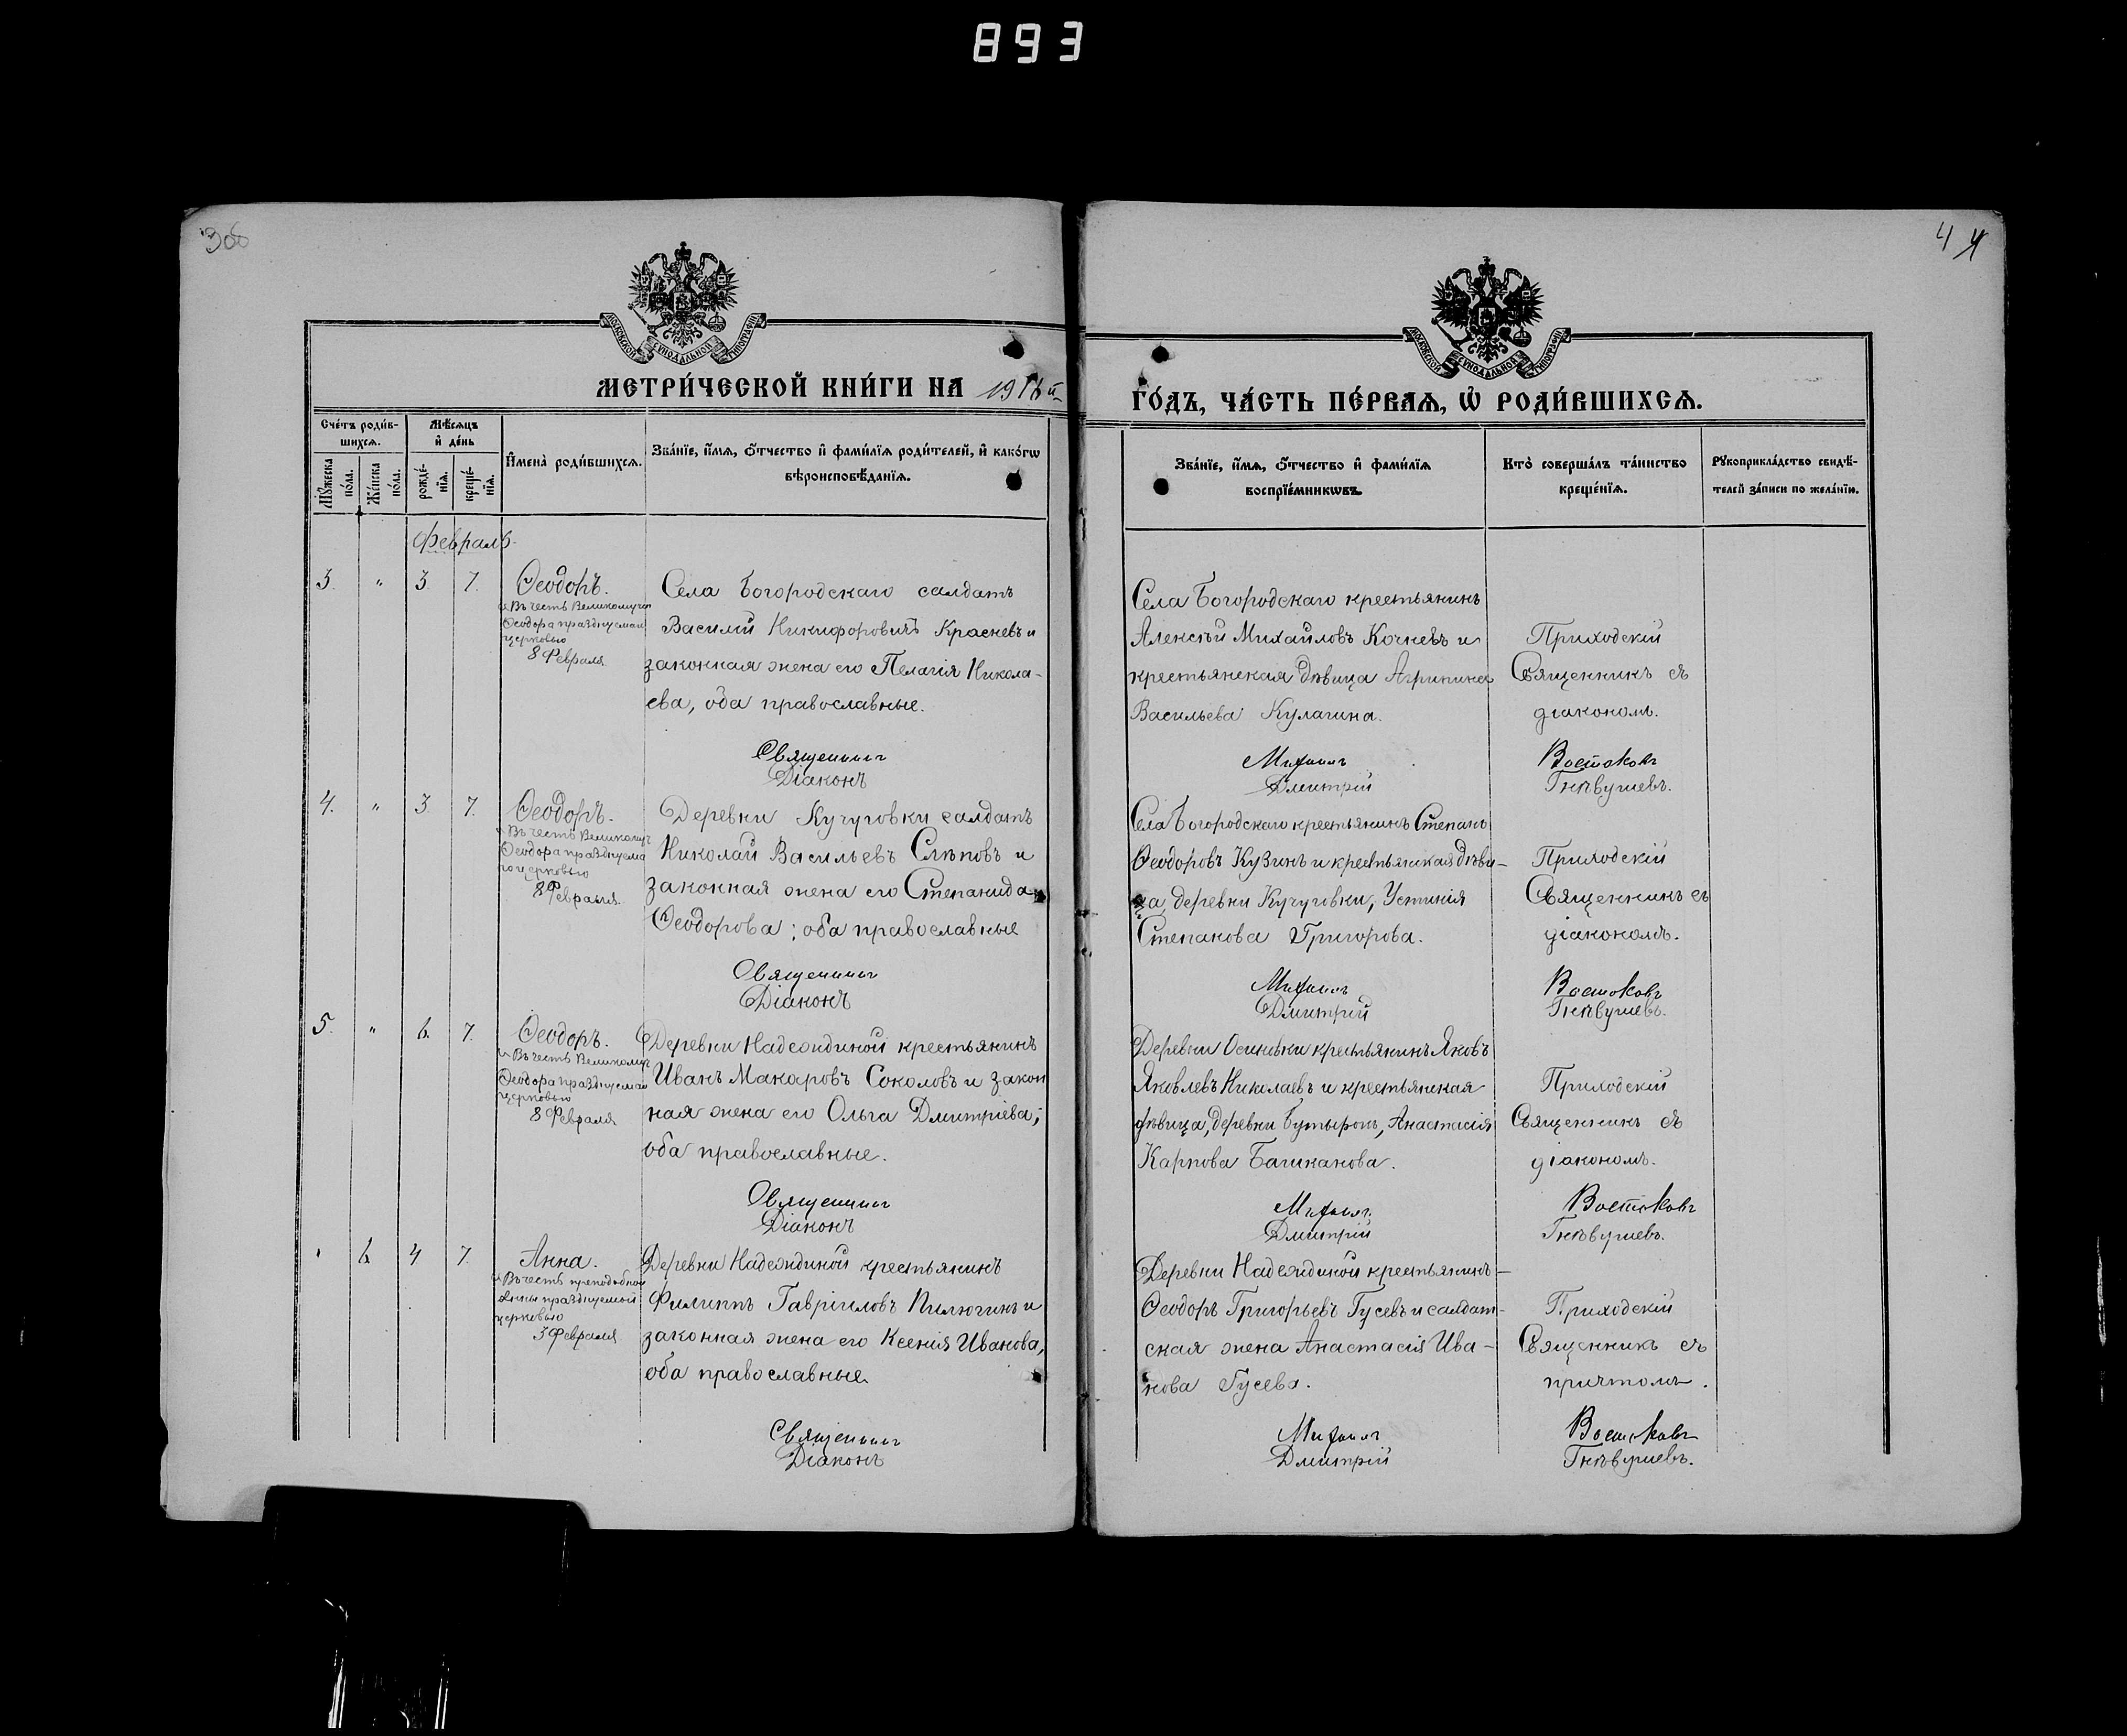 893
306
4 4
МОСКОВСКОЙ СѴНОДАЛЬНОЙ ТИПОГРАФІИ
МОСКОВСКОЙ СѴНОДАЛЬНОЙ ТИПОГРАФІИ
МЕТРИ́ЧЕСКОЙ КНИ́ГИ НА 1916 й
ГО́ДЪ, ЧА́СТЬ ПЕ́РВАѦ, Ѡ҆ РОДИ́ВШИХСѦ.
Сче́тъ роди́в-
шихсѧ.
Мꙋ́жеска по́ла.
Же́нска по́ла.
Мѣ́сѧцъ
и҆ де́нь
рожде́-нїѧ.
креще́-нїѧ.
И҆мена̀ роди́вшихсѧ.
Зва́нїе, и҆́мѧ, ѻ҆́тчество и҆ фами́лїѧ роди́телей, и҆ како́гѡ
вѣроисповѣ́данїѧ.
Зва́нїе, и҆́мѧ, ѻ҆́тчество и҆ фами́лїѧ
воспрїе́мникѡвъ.
Кто̀ соверша́лъ та́инство
креще́нїѧ.
Рꙋкоприкла́дство свидѣ́-
телей за́писи по жела́нїю.
Февраль
3. " 3 7.
Ѳеодоръ.
Въ честь Великомуч
Ѳеодора празднуемаго
церковью
8 Февраля
Села Богородскаго солдатъ
Василій Никифоровичъ Красневъ и
законная жена его Пелагія Никола-
ева, оба православные.
Священникъ
Діаконъ
Села Богородскаго крестьянинъ
Алексѣй Михайловъ Кочневъ и
крестьянская дѣвица Агрипина
Васильева Кулагина.
Михаилъ
Дмитрій
Приходскій
Священникъ съ
діакономъ.
Востоковъ
Гнѣвушевъ.
4. " 3 7.
Ѳеодоръ.
Въ честь Великомуч
Ѳеодора празднуема
го церковью
8 Февраля
Деревни Кучуговки солдатъ
Николай Васильевъ Слѣповъ и
законная жена его Степанида
Ѳеодорова; оба православные
Священникъ
Діаконъ
Села Богородскаго крестьянинъ Степанъ
Ѳеодоровъ Кузинъ и крестьянская дѣви-
ца деревни Кучуговки, Устинія
Степанова Григорова.
Михаилъ
Дмитрій
Приходскій
Священникъ съ
діакономъ.
Востоковъ
Гнѣвушевъ.
5. " 6. 7.
Ѳеодоръ.
Въ честь Великомуч
Ѳеодора празднуемаго
церковью
8 Февраля
Деревни Надеждиной крестьянинъ
Иванъ Макаровъ Соколовъ и закон
ная жена его Ольга Дмитріева;
оба православные.
Священникъ
Діаконъ
Деревни Осиновки крестьянинъ Яковъ
Яковлевъ Николаевъ и крестьянская
дѣвица, деревни Бутырокъ, Анастасія
Карпова Башканова.
Михаилъ
Дмитрій
Приходскій
Священникъ съ
діакономъ.
Востоковъ
Гнѣвушевъ.
" 6. 4 7.
Анна.
Въ честь преподобной
Анны празднуемой
церковью
3 Февраля
Деревни Надеждиной крестьянинъ
Филиппъ Гавріиловъ Пилюгинъ и
законная жена его Ксенія Иванова,
оба православные
Священникъ
Діаконъ
Деревни Надеждиной крестьянинъ
Ѳеодоръ Григорьевъ Гусевъ и солдат-
ская жена Анастасія Ива-
нова Гусева.
Михаилъ
Дмитрій
Приходскій
Священникъ съ
причтомъ.
Востоковъ
Гнѣвушевъ.